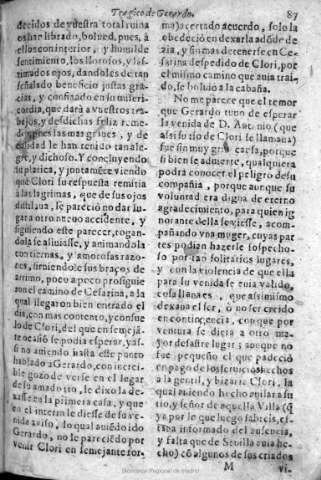 Tragico de Gerardo. 87
decidos de vuestra total ruina
os han librado, bolued, pues, à
ellos con interior, y humilde
sentimiento, los llorosos, y lasti-
mados ojos, dandoles de tan
señalado beneficio justas gra-
cias, y confiando en su miseri-
cordia, que dará a vuestros tra-
bajos, y desdichas feliz reme-
las mas graues, y de
calidad le han tenido tan ale-
gre, y dichoso. Y concluyendo
su platica, y juntamente viendo
que Clori su respuesta remitia
a las lagrimas, que de sus ojos
destilaua, le pareció no dar lu-
gara otro nueuo accidente, y
siguiendo este parecer, rogan-
dola se aliuiasse, y animandola
con tiernas, y amorosas razo-
nes, siruiendole sus braços de
arrimo, poco a poco prosiguie
ron el camino de Cesarina, a la
qual llegaron bien entrado el
dia, con mas contento, y consue
lo de Clori, del que en semejá-
te ocasió se podia esperar, y assi
si no auiendo hasta este punto
hablado a Gerardo, con increi-
ble gozo de verse en el lugar
de su amado tio, le dixo la de-
xasse en la primera casa, y que
en el interin le diesse de su ve-
nida auiso, lo qual auiédo ido
Gerardo, no le pareciédo por
venir Clori en semejante for-
ma) acertado acuerdo, solo la
obedeció en dexarla adóde de-
zia, y sin mas detenerse en Ce-
sarina despedido de Clori, por
el mismo camino que auia trai-
do, se boluio a la cabaña.
No me parece que el temor
que Gerardo tuuo de esperar
la venida de D. Antonio (que
assi su tio de Clori se llamaua)
fue sin muy gran causa, porque
si bien se aduierte, qualquiera
podrá conocer el peligro de su
compañia, porque aunque su
voluntad era digna de eterno
agradecimiento, para quien ig
norante della le viesse, acom-
pañando vna muger, cuyas par
tes podian hazerle sospecho-
so por tan solitarios lugares,
y con la violencia de que ella
para su venida se auia valido,
cosa llana es, que assi mismo
dexaua el ser, ò no ser creido
en contingencia, con que por
ventura se diera a otro ma-
yor desastre lugar; aunque no
fue pequeño el que padeció
en pago de los seruicios hechos
a la gentil, y bizarra Clori, la
qual auiendo hecho auisar a su
tio, y señor de aquella Villa (q
ya por lo que luego sabreis, es-
taua informado del ausencia,
y falta que de Seuilla auia he-
cho) có algunos de sus criados
M vi-
Biblioteca Regional de Madrid